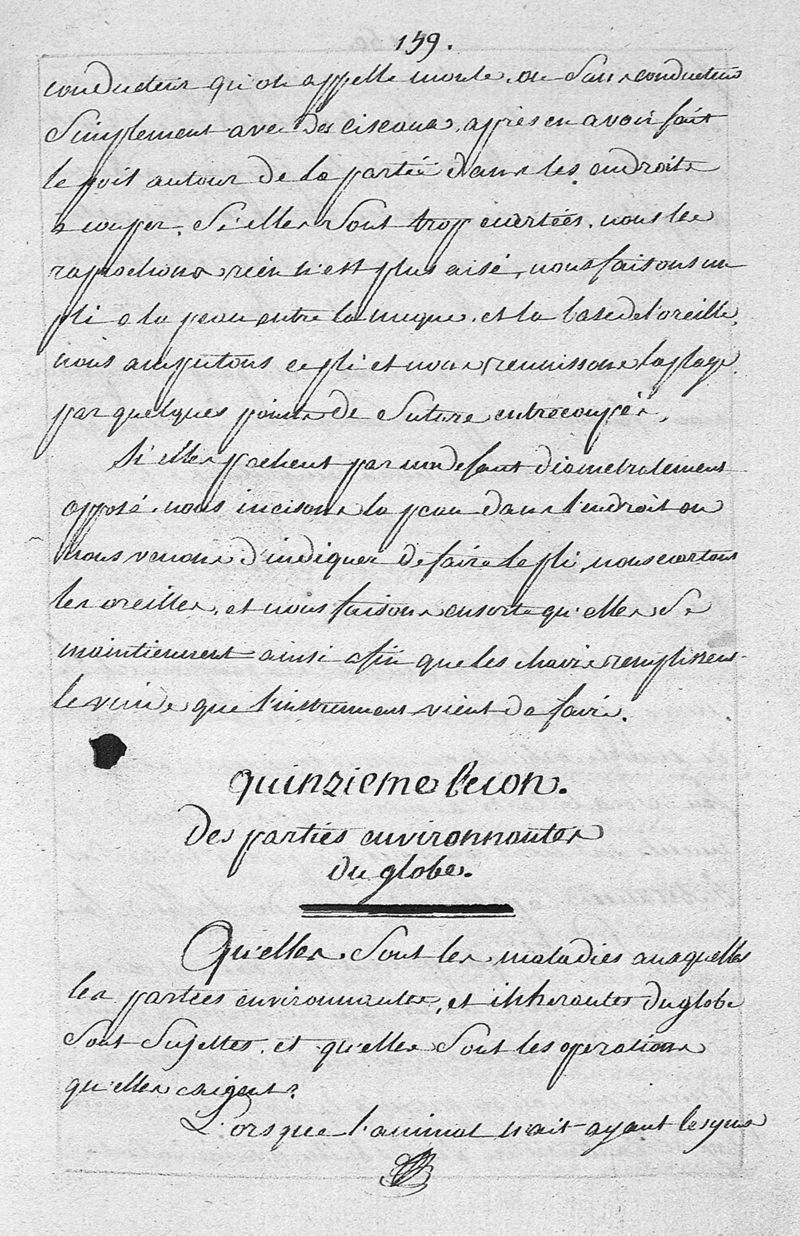 159.
conducteur qu'on appelle moule, ou sans conducteur
Simplement avec des ciseaux, après en avoir fait
le poil autour de la partie dans les endroits
a couper. Si elles sont trop écartées, nous les
raprochons rien n'est plus aisé, nous faisons un
pli a la peau entre la nuque, et la base de l'oreille,
nous amputons ce pli et nous reunissons la plage
par quelques points de Suture entrecoupés.
Si elles pechent par un defaut diametralement
opposé, nous incisons la peau dans l'endroit ou
nous venons d'indiquer de faire le pli, nous ecartons
les oreilles, et nous faisons ensorte qu'elles se
maintiennent ainsi afin que les chairs remplissent
le vuide que l'instrument vient de faire.
Quinzieme lecon.
Des parties environnantes
du globe.
Qu'elles sont les maladies auxquelles
les parties environnantes, et inherantes du globe
sont sujettes, et qu'elles sont les operations
qu'elles exigent?
L'orsque l'animal nait ayant les yeux